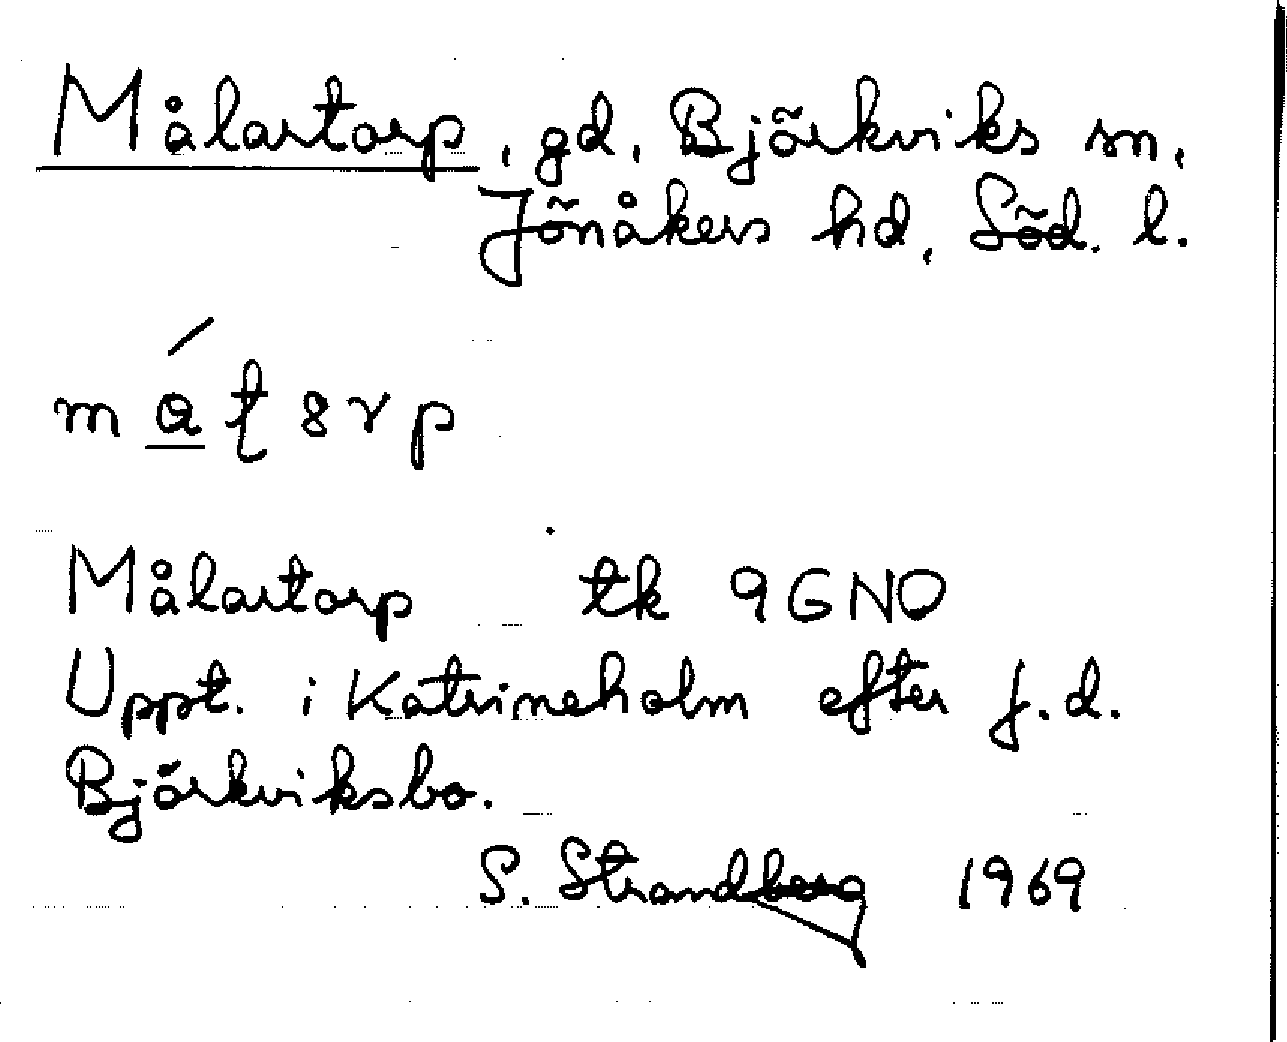 Målartorp, gd, Björkviks sn,
Jönåkers hd, Söd. l.
Målartorp tk 9GNO
Uppt. i Katrineholm efter f.d.
Björkviksbo.
S. Strandberg 1969